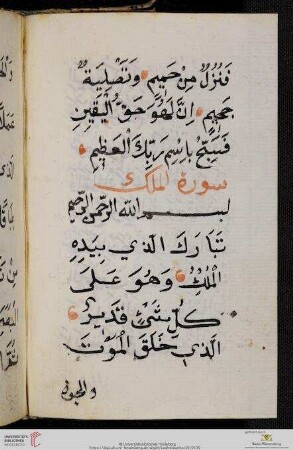 فَنُزُلٌ مِنْ حَمِيمٍ وَتَصْلِيَةُ
جَحِيمٍ اِنَّ هٰذَا لَهُوَ حَقُّ الْيَقِينِ
فَسَبِّحْ بِاسْمِ رَبِّكَ الْعَظِيمِ
سورة الملك
بسم الله الرحمن الرحيم
تَبَارَكَ الَّذِي بِيَدِهِ
الْمُلْكُ وَهُوَ عَلَى
كُلِّ شَيْءٍ قَدِيرٌ
الَّذِي خَلَقَ الْمَوْتَ
والحيوة
UNIVERSITÄTS-
BIBLIOTHEK
HEIDELBERG
© Universitätsbibliothek Heidelberg
Baden-Württemberg